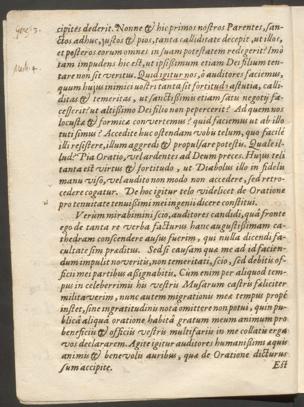 cipites dederit. Nonne & hic primos nostros Parentes, san-
ctos adhuc, justos & pios, tanta calliditate decepit, ut illos,
et posteros eorum omnes in suam potestatem redegerit? Imò
tam impudens hic est, ut ipsissimum etiam Dei filium ten-
tare non sit veritus. Quid igitur nos, ô auditores faciemus,
quum hujus inimici nostri tanta sit fortitudo astutia, calli-
ditas & temeritas, ut sanctissimis etiam satu negotij fa-
cesserit? ut altissimo Dei filio non pepercerit? Ad quem nos
locustæ & formicæ convertemus? quid faciemus ut ab illo
tuti simus? Accedite huc ostendam vobis telum, quo facilè
illi resistere, illum aggredi & propulsare potestis. Quale il-
lud? Pia Oratio, vel ardentes ad Deum preces. Hujus teli
tanta est virtus & fortitudo, ut Diabolus illo in fidelis
manu viso, vel audito non modo non accedere, sed retro-
cedere cogatur. De hoc igitur telo videlicet de Oratione
pro tenuitate tenuissimi mei ingenii dicere constitui.
Verum mirabimini scio, auditores candidi, quâ fronte
ego de tanta re verba facturus hanc augustissimam ca-
thedram conscendere ausus fuerim, qui nulla dicendi fa-
cultate sim præditus. Sed si causam quæ me ad id facien-
dum impulit noveritis, non temeritati, scio, sed debitis of-
ficii mei partibus assignabitis. Cum enim per aliquod tem-
pus in celeberrimis his vestris Musarum castris fæliciter
militaverim, nunc autem migrationis meæ tempus propè
instet, sine ingratitudinis nota omittere non potui, quin pu-
blicâ aliquâ oratione habitâ gratum meum animum pro
beneficiis & officiis vestris multifariis in me collatis erga
vos declararem. Agite igitur auditores humanissimi æquis
animis & benevolis auribus, quæ de Oratione dicturus
sum accipite.
Est